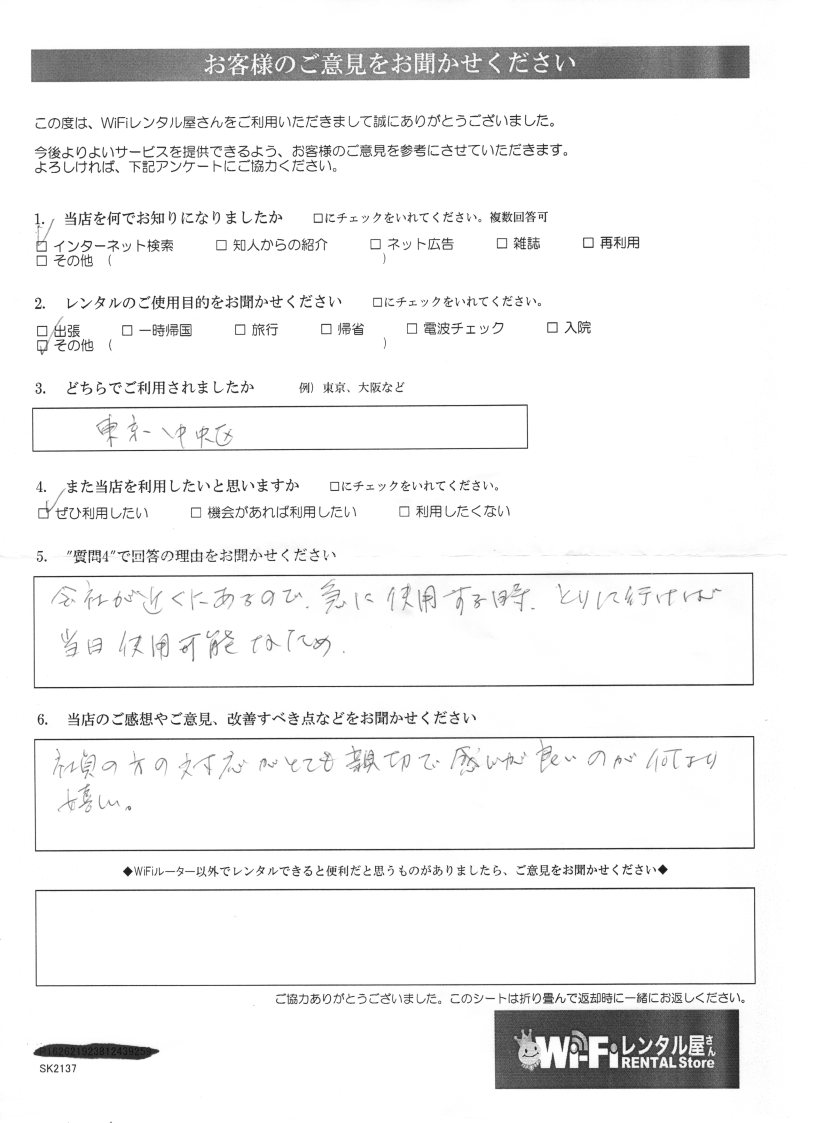 お客様のご意見をお聞かせください
この度は、WiFiレンタル屋さんをご利用いただきまして誠にありがとうございました。
今後よりよいサービスを提供できるよう、お客様のご意見を参考にさせていただきます。
よろしければ、下記アンケートにご協力ください。
1. 当店を何でお知りになりましたか □にチェックをいれてください。複数回答可
☑ インターネット検索 □ 知人からの紹介 □ ネット広告 □ 雑誌 □ 再利用
□ その他 ( )
2. レンタルのご使用目的をお聞かせください □にチェックをいれてください。
□ 出張 □ 一時帰国 □ 旅行 □ 帰省 □ 電波チェック □ 入院
☑ その他 ( )
3. どちらでご利用されましたか 例）東京、大阪など
東京 中央区
4. また当店を利用したいと思いますか □にチェックをいれてください。
☑ ぜひ利用したい □ 機会があれば利用したい □ 利用したくない
5. "質問4"で回答の理由をお聞かせください
会社が近くにあるので、急に使用する時、とりに行けば
当日使用可能なため。
6. 当店のご感想やご意見、改善すべき点などをお聞かせください
社員の方の対応がとても親切で感じが良いのが何より
嬉しい。
◆WiFiルーター以外でレンタルできると便利だと思うものがありましたら、ご意見をお聞かせください◆
ご協力ありがとうございました。このシートは折り畳んで返却時に一緒にお返しください。
Wi-Fiレンタル屋さん
RENTAL Store
SK2137